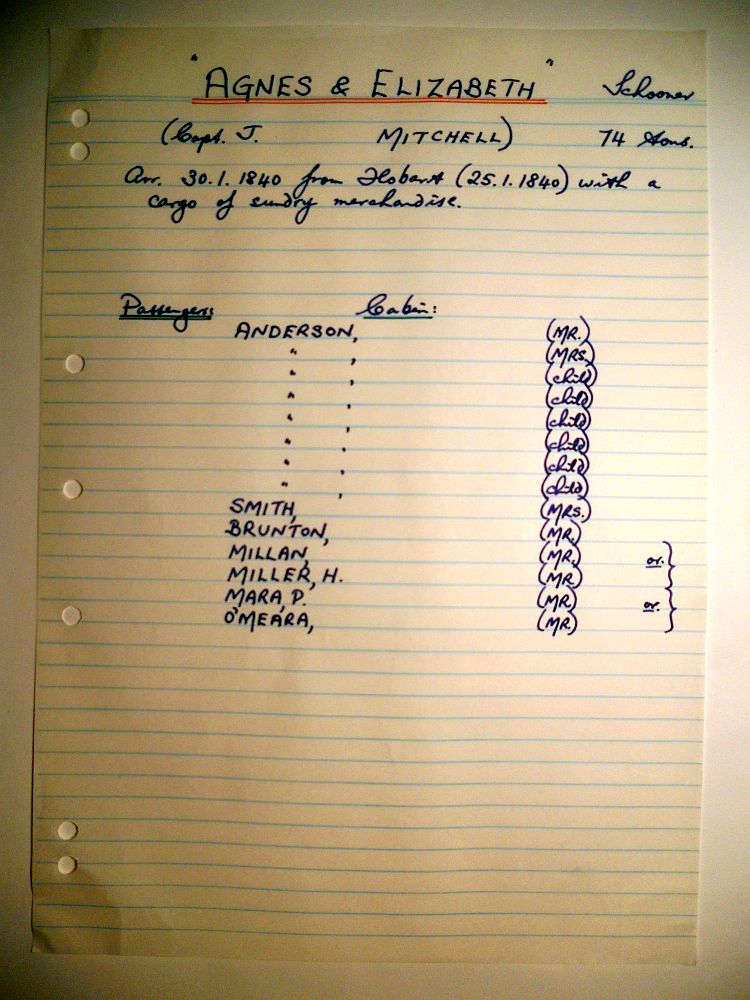 "AGNES & ELIZABETH" Schooner
(Capt. J. MITCHELL) 74 tons.
Arr. 30.1.1840 from Hobart (25.1.1840) with a
cargo of sundry merchandise.
Passengers: Cabin:
ANDERSON, (MR.)
" , (MRS.)
" , (child)
" , (child)
" , (child)
" , (child)
" , (child)
" , (child)
SMITH, (MRS.)
BRUNTON, (MR.)
MILLAN, (MR.) or. }
MILLER, H. (MR.)
MARA, P. (MR.) or. }
O'MEARA, (MR.)